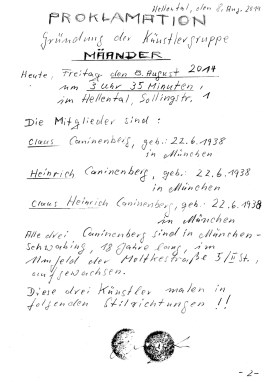 Hellental, den 8. Aug. 2014
PROKLAMATION
Gründung der Künstlergruppe
MÄANDER
Heute, Freitag den 8. August 2014
um 3 Uhr 35 Minuten,
im Hellental, Sollingstr. 1
Die Mitglieder sind:
Claus Caninenberg, geb.: 22.6.1938
in München
Heinrich Caninenberg, geb.: 22.6.1938
in München
Claus Heinrich Caninenberg, geb.: 22.6.1938
in München
Alle drei Caninenberg sind in München-
Schwabing, 18 Jahre lang, im
Umfeld der Moltkestraße 5/II St.,
aufgewachsen.
Diese drei Künstler malen in
folgenden Stilrichtungen !!
-2-